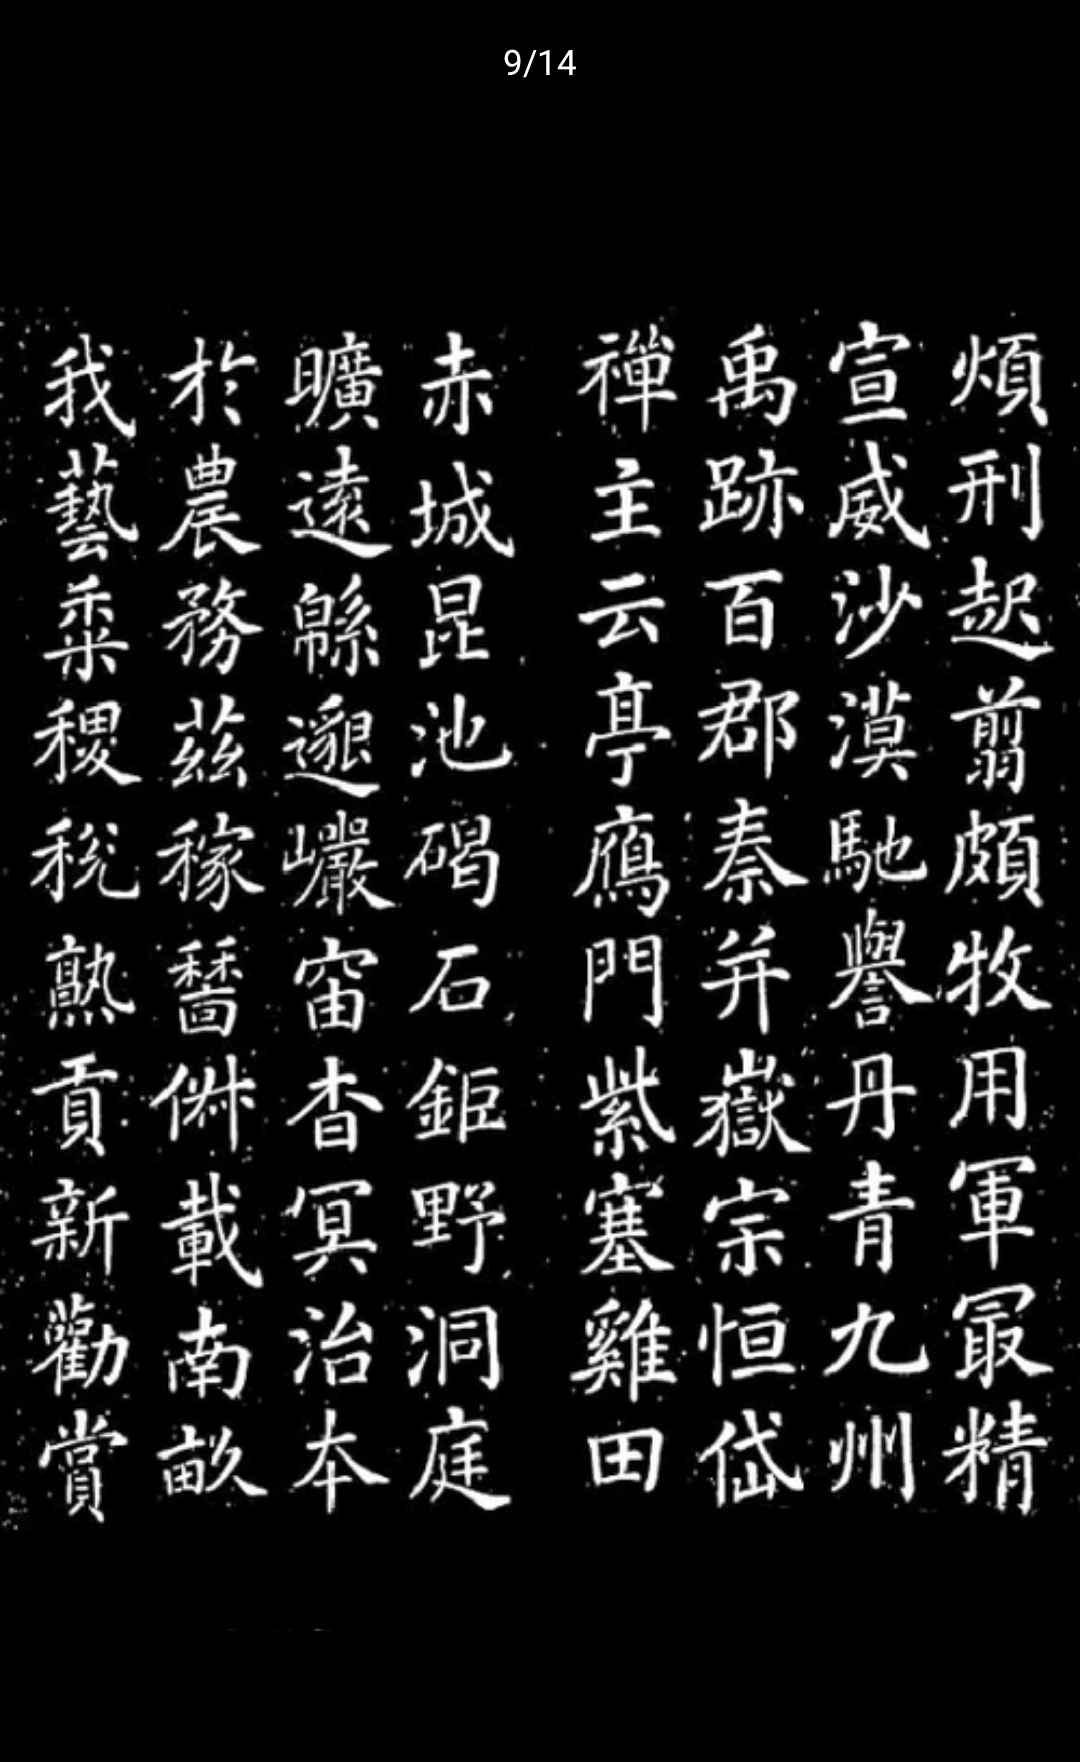 9/14
煩刑起翦頗牧用軍最精
宣威沙漠馳譽丹青九州
禹跡百郡秦并嶽宗恒岱
禪主云亭鴈門紫塞雞田
赤城昆池碣石鉅野洞庭
曠遠緜邈巖宙杳冥治本
於農務茲稼穡俶載南畝
我藝黍稷稅熟貢新勸賞